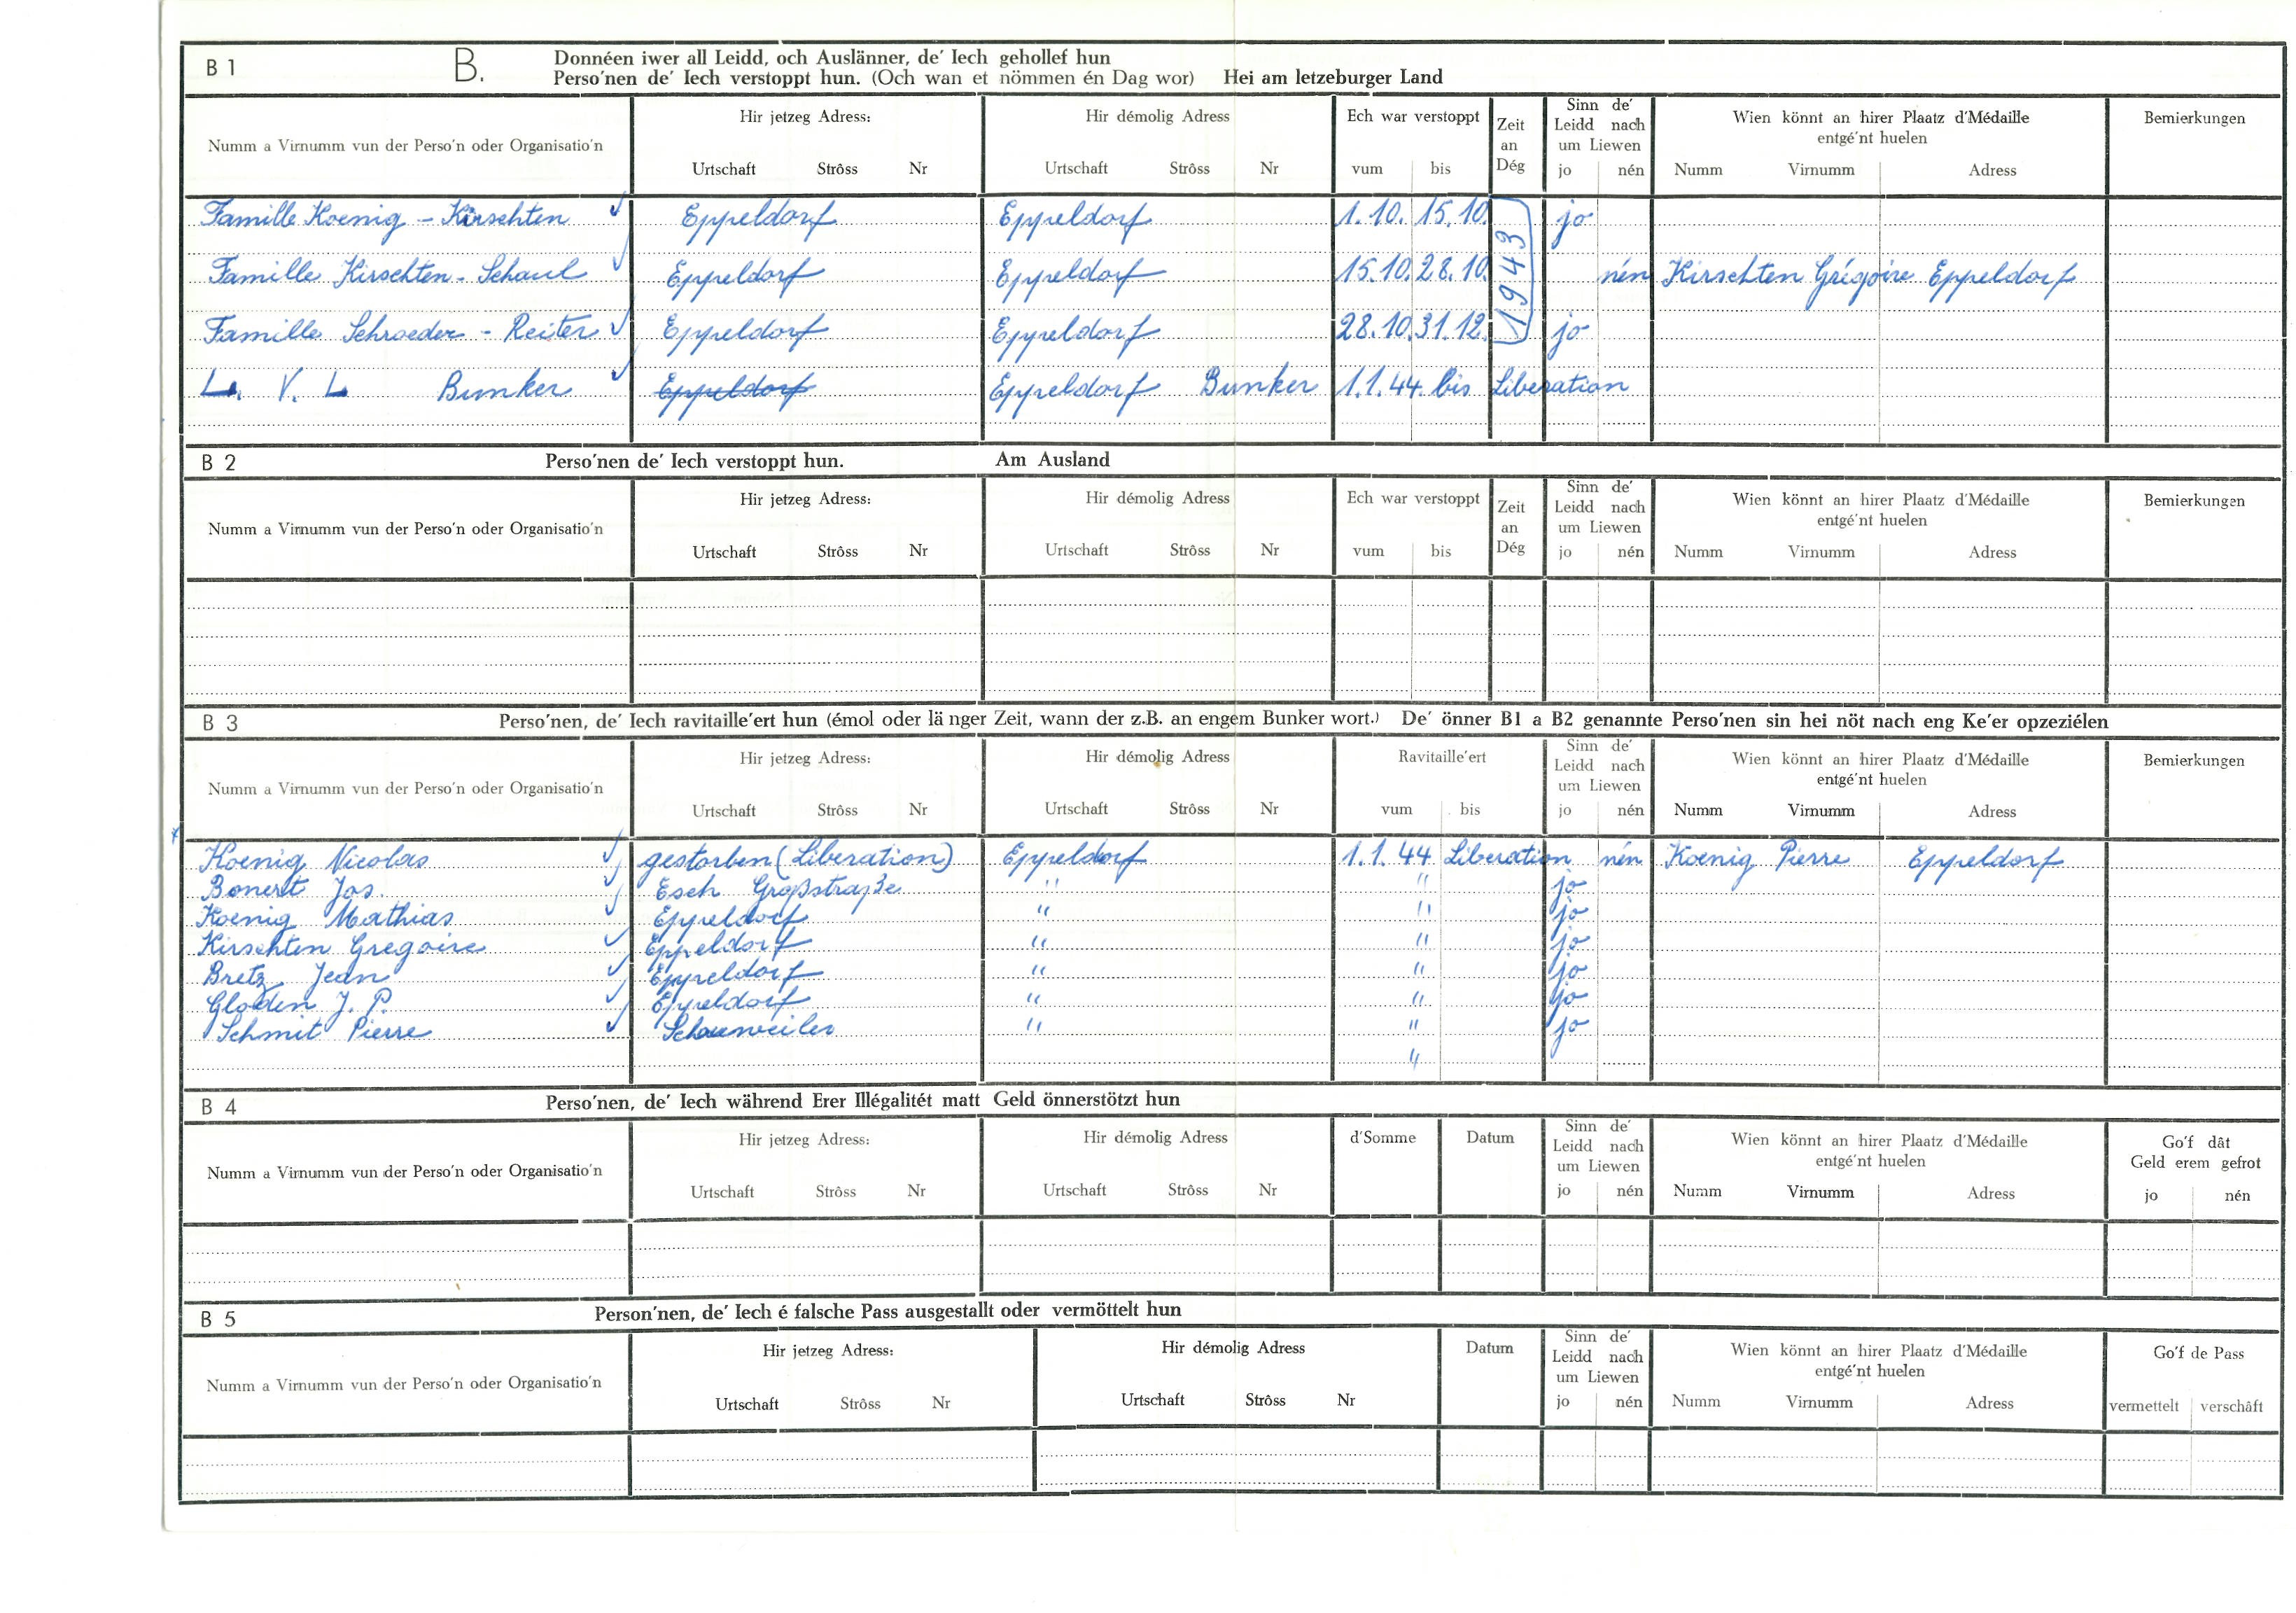 B 1 B. Donnéen iwer all Leidd, och Auslänner, de' Iech gehollef hun
Perso'nen de' Iech verstoppt hun. (Och wan et nömmen én Dag wor) Hei am letzeburger Land
Numm a Virnumm vun der Perso'n oder Organisatio'n
Hir jetzeg Adress:
Urtschaft Strôss Nr
Hir démolig Adress
Urtschaft Strôss Nr
Ech war verstoppt
vum bis
Zeit
an
Dég
Sinn de'
Leidd nach
um Liewen
jo nén
Wien könnt an hirer Plaatz d'Médaille
entgé'nt huelen
Numm Virnumm Adress
Bemierkungen
Famille Koenig - Kirschten Eppeldorf Eppeldorf 1.10. 15.10. jo
Famille Kirschten - Schaul Eppeldorf Eppeldorf 15.10. 28.10. 1943 nén Kirschten Grégoire Eppeldorf
Famille Schroeder - Reiter Eppeldorf Eppeldorf 28.10. 31.12. jo
L. V. L Bunker Eppeldorf Eppeldorf Bunker 1.1.44. bis Liberation
B 2 Perso'nen de' Iech verstoppt hun. Am Ausland
Numm a Virnumm vun der Perso'n oder Organisatio'n
Hir jetzeg Adress:
Urtschaft Strôss Nr
Hir démolig Adress
Urtschaft Strôss Nr
Ech war verstoppt
vum bis
Zeit
an
Dég
Sinn de'
Leidd nach
um Liewen
jo nén
Wien könnt an hirer Plaatz d'Médaille
entgé'nt huelen
Numm Virnumm Adress
Bemierkungen
B 3 Perso'nen, de' Iech ravitaille'ert hun (émol oder länger Zeit, wann der z.B. an engem Bunker wort.) De' önner B1 a B2 genannte Perso'nen sin hei nöt nach eng Ke'er opzeziélen
Numm a Virnumm vun der Perso'n oder Organisatio'n
Hir jetzeg Adress:
Urtschaft Strôss Nr
Hir démolig Adress
Urtschaft Strôss Nr
Ravitaille'ert
vum bis
Sinn de'
Leidd nach
um Liewen
jo nén
Wien könnt an hirer Plaatz d'Médaille
entgé'nt huelen
Numm Virnumm Adress
Bemierkungen
Koenig Nicolas gestorben (Liberation) Eppeldorf 1.1.44 Liberation nén Koenig Pierre Eppeldorf
Bonert Jos. Esch Großstraße " " jo
Koenig Mathias Eppeldorf " " jo
Kirschten Gregoire Eppeldorf " " jo
Bretz Jean Eppeldorf " " jo
Gloden J. P. Eppeldorf " " jo
Schmit Pierre Schouweiler " " jo
"
B 4 Perso'nen, de' Iech während Erer Illégalitét matt Geld önnerstötzt hun
Numm a Virnumm vun der Perso'n oder Organisatio'n
Hir jetzeg Adress:
Urtschaft Strôss Nr
Hir démolig Adress
Urtschaft Strôss Nr
d'Somme
Datum
Sinn de'
Leidd nach
um Liewen
jo nén
Wien könnt an hirer Plaatz d'Médaille
entgé'nt huelen
Numm Virnumm Adress
Go'f dât
Geld erem gefrot
jo nén
B 5 Person'nen, de' Iech é falsche Pass ausgestallt oder vermöttelt hun
Numm a Virnumm vun der Perso'n oder Organisatio'n
Hir jetzeg Adress:
Urtschaft Strôss Nr
Hir démolig Adress
Urtschaft Strôss Nr
Datum
Sinn de'
Leidd nach
um Liewen
jo nén
Wien könnt an hirer Plaatz d'Médaille
entgé'nt huelen
Numm Virnumm Adress
Go'f de Pass
vermettelt verschâft